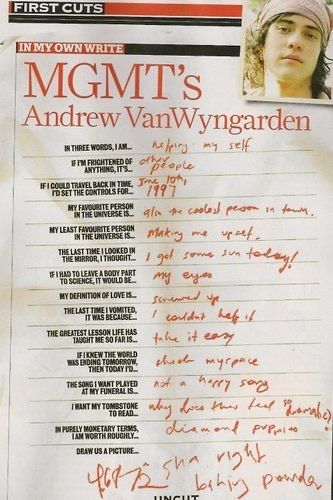 FIRST CUTS
IN MY OWN WRITE
MGMT's
Andrew VanWyngarden
IN THREE WORDS, I AM... helping my self
IF I'M FRIGHTENED OF other
ANYTHING, IT'S... people
IF I COULD TRAVEL BACK IN TIME, June 10th,
I'D SET THE CONTROLS FOR... 1997
MY FAVOURITE PERSON
IN THE UNIVERSE IS... also the coolest person in town.
MY LEAST FAVOURITE PERSON
IN THE UNIVERSE IS... Making me upset.
THE LAST TIME I LOOKED IN
THE MIRROR, I THOUGHT... I got some sun today!
IF I HAD TO LEAVE A BODY PART
TO SCIENCE, IT WOULD BE... my eyes
MY DEFINITION OF LOVE IS... screwed up
THE LAST TIME I VOMITED,
IT WAS BECAUSE... I couldnt help it
THE GREATEST LESSON LIFE HAS
TAUGHT ME SO FAR IS... take it easy
IF I KNEW THE WORLD
WAS ENDING TOMORROW,
THEN TODAY I'D... check myspace
THE SONG I WANT PLAYED
AT MY FUNERAL IS... not a happy song
I WANT MY TOMBSTONE
TO READ... why does this feel so dramatic?
IN PURELY MONETARY TERMS,
I AM WORTH ROUGHLY... diamond puppies
DRAW US A PICTURE...
right
powder
UNCUT